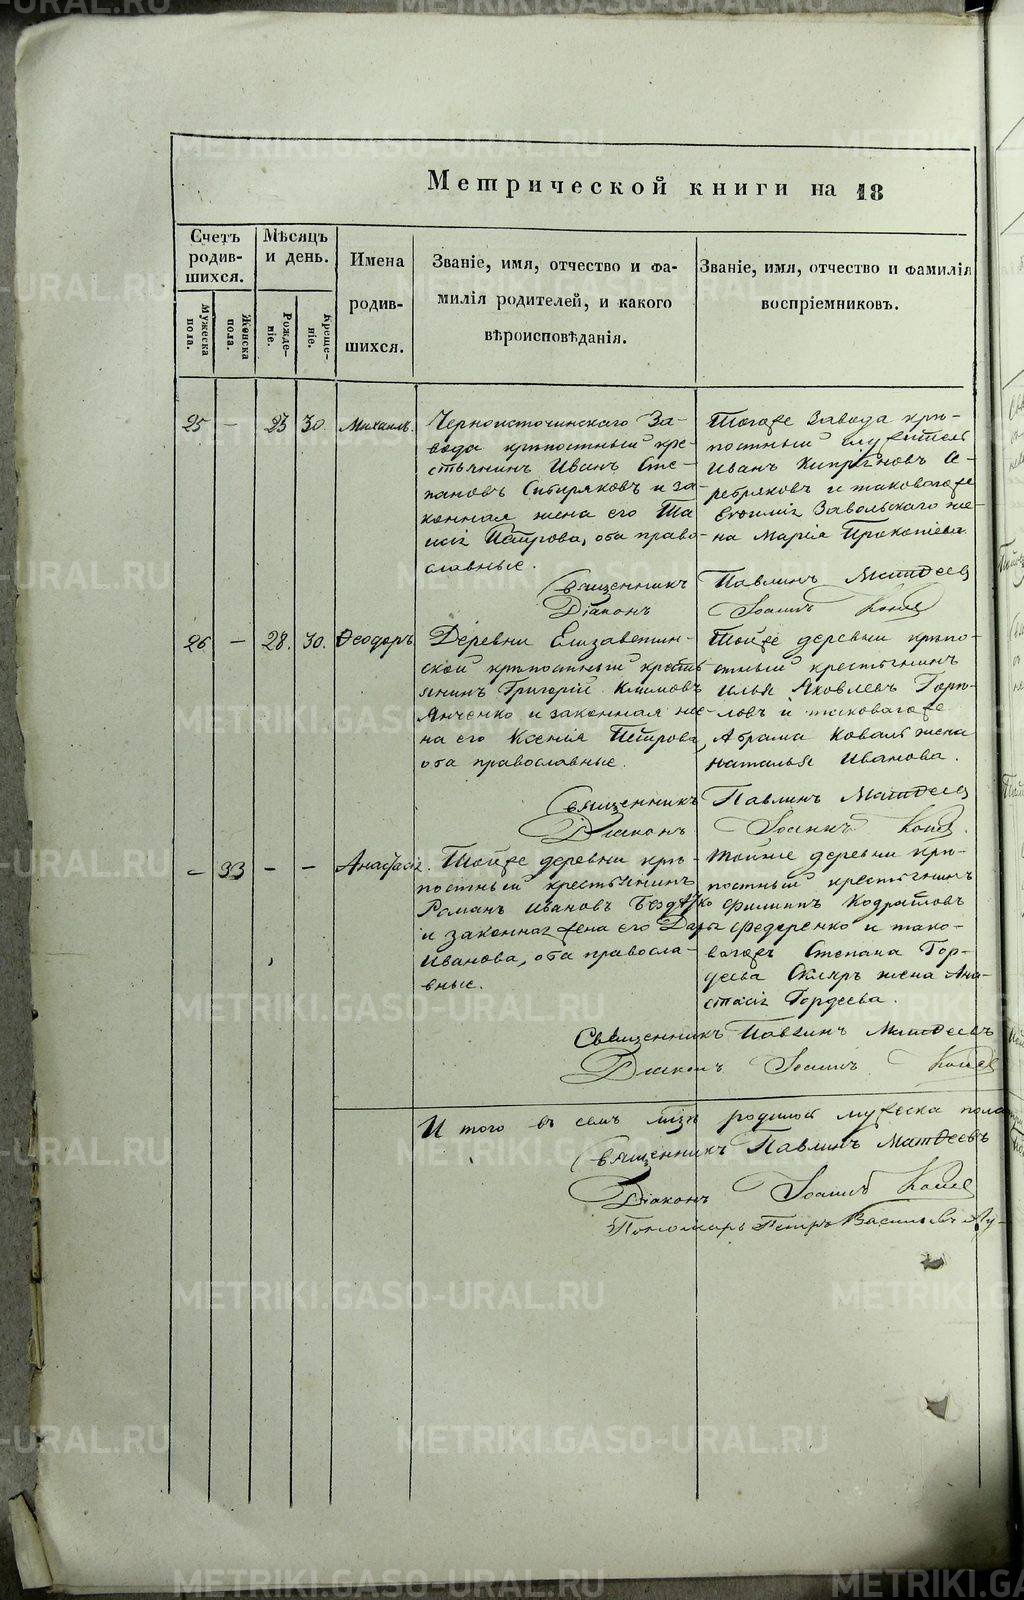 METRIKI.GASO-URAL.RU
Метрической книги на 18
Счетъ родив-шихся.
Мѣсяцъ и день.
Имена родив-шихся.
Званіе, имя, отчество и фа-
милія родителей, и какого
вѣроисповѣданія.
Званіе, имя, отчество и фамилія
воспріемниковъ.
Мужеска пола.
Женска пола.
Рожде-ніе.
Креще-ніе.
25 — 23 30 Михаилъ.
Черноисточинскаго За-
вода крѣпостный кре-
стьянинъ Иванъ Сте-
пановъ Сибиряковъ и за-
конная жена его Та
исія Петрова, оба право-
славные.
Тогоже Завода крѣ-
постный служитель
Иванъ Кипріяновъ Се-
ребряковъ и таковагоже
Завольскаго же-
на Марія Прокопіева
Священникъ Павлинъ Матѳеев
Діаконъ Іоаннъ
26 — 28. 30. Ѳеодоръ
Деревни Елизаветин-
ской крѣпостный кресть
янинъ Григорій Климовъ
Янченко и законная же-
на его Ксенія Петрова,
оба православные.
Тойже деревни крѣпо-
стный крестьянинъ
Илья Яковлевъ Горѣ-
ловъ и таковагоже
Абрама Коваля жена
Наталья Иванова.
Священникъ Павлинъ Матѳеев
Діаконъ Іоаннъ
— 33 — — Анастасія.
Тойже деревни крѣ-
постный крестьянинъ
Романъ Ивановъ
и законная жена его Дарья
Иванова, оба правосла-
вные.
Тойже деревни крѣ-
постный крестьянинъ
Филиппъ Кодратовъ
Федоренко и тако-
вагожъ Степана Гор-
деева Скляръ жена Ана-
стасія Гордеева.
Священникъ Павлинъ Матѳеевъ
Діаконъ Іоаннъ
И того въ семъ родилось мужеска пола
Священникъ Павлинъ Матѳеевъ
Діаконъ Іоаннъ
Пономарь Петръ Васильевъ